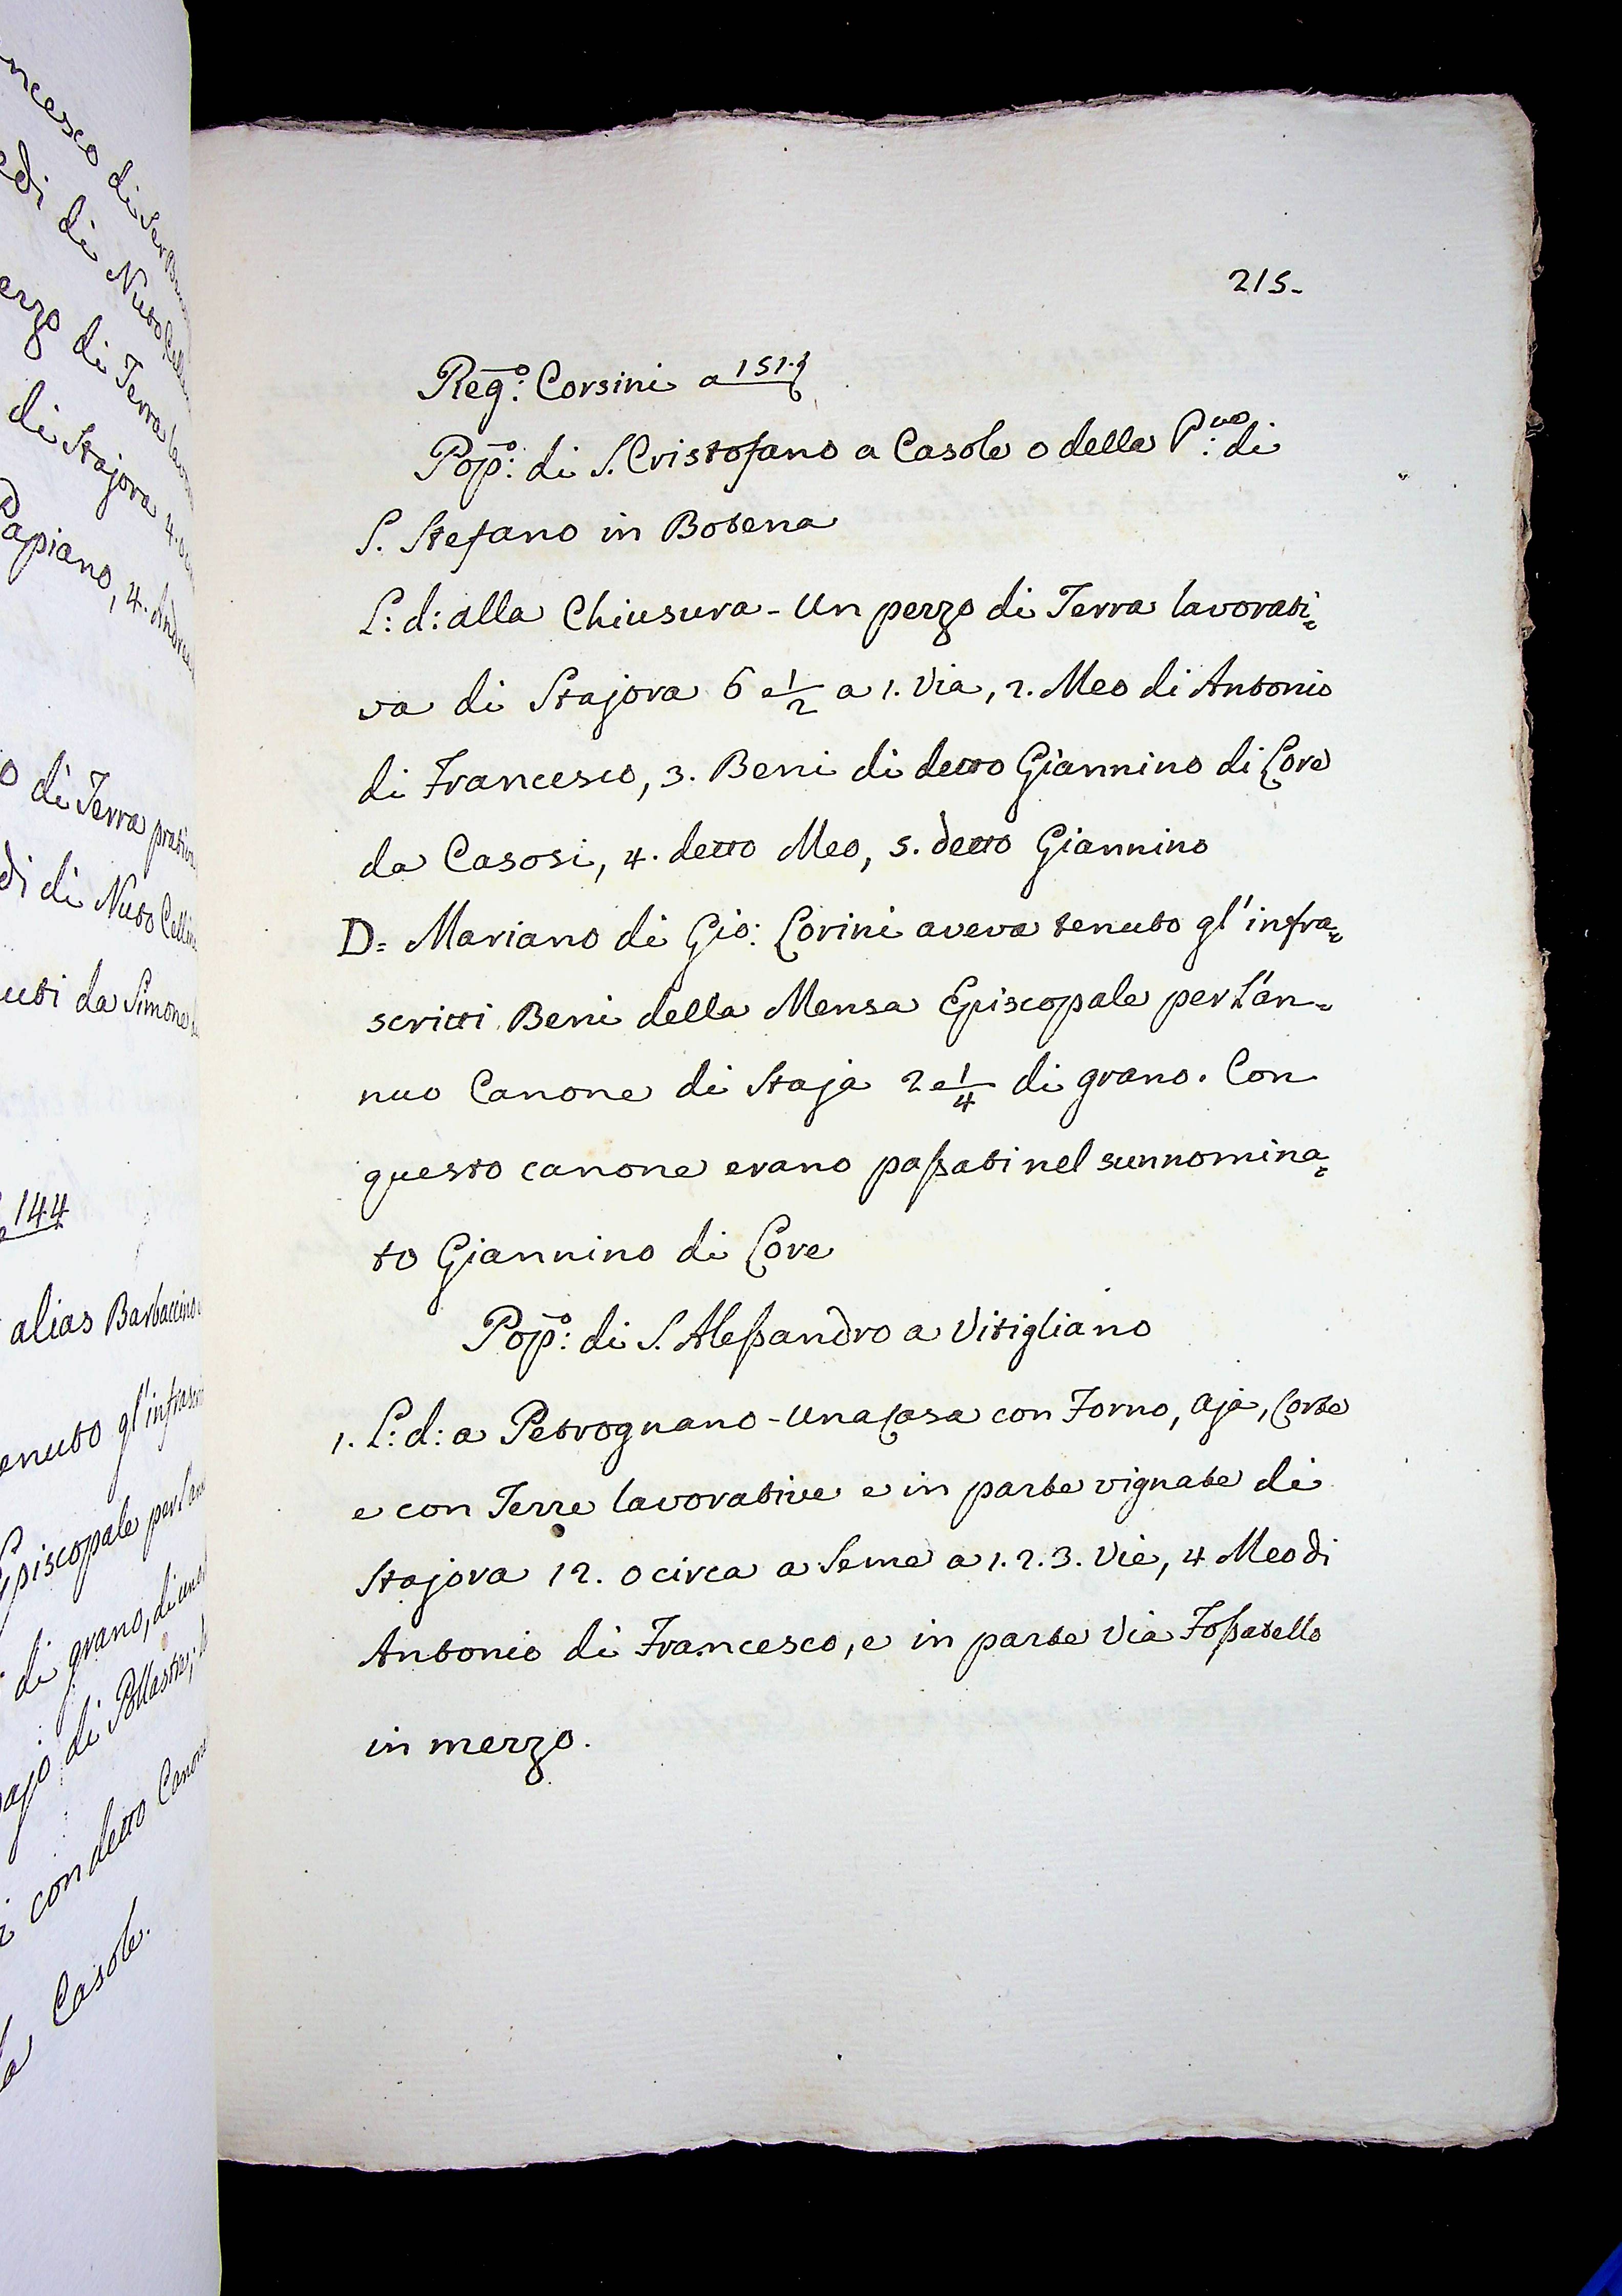 ncesco di Ser
edi di Nuto Cell
erzo di Terra lavo
di Stajora 4.
Papiano, 4. Andre
o di Terra prativa
di di Nuto Cellin
uti da Simone
144
alias Barbaccino
enuto gl'infrasc
Episcopale per l'an
di grano, di un
ajo di Pollastre;
i con detto Canone
a Casole.
215.
Reg.º: Corsini a 151.
Pop.º: di S. Cristofano a Casole o della P.: di
S. Stefano in Botena
L: d: alla Chiusura - Un pezzo di Terra lavorati=
va di Stajora 6 e 1/2 a 1. Via, 2. Meo di Antonio
di Francesco, 3. Beni di detto Giannino di Core
da Casosi, 4. detto Meo, 5. detto Giannino
D= Mariano di Gio: Corini aveva tenuto gl'infra=
scritti Beni della Mensa Episcopale per l'an=
nuo Canone di Staja 2 e 1/4 di grano. Con
questo canone erano passati nel sunnomina=
to Giannino di Core
Pop.º: di S. Alessandro a Vitigliano
1. L: d: a Petrognano - Una Casa con Forno, Aja, Corte
e con Terre lavorative e in parte vignate di
Stajora 12. o circa a Seme a 1. 2. 3. Vie, 4 Meo di
Antonio di Francesco, e in parte Via Fossatello
in mezzo.